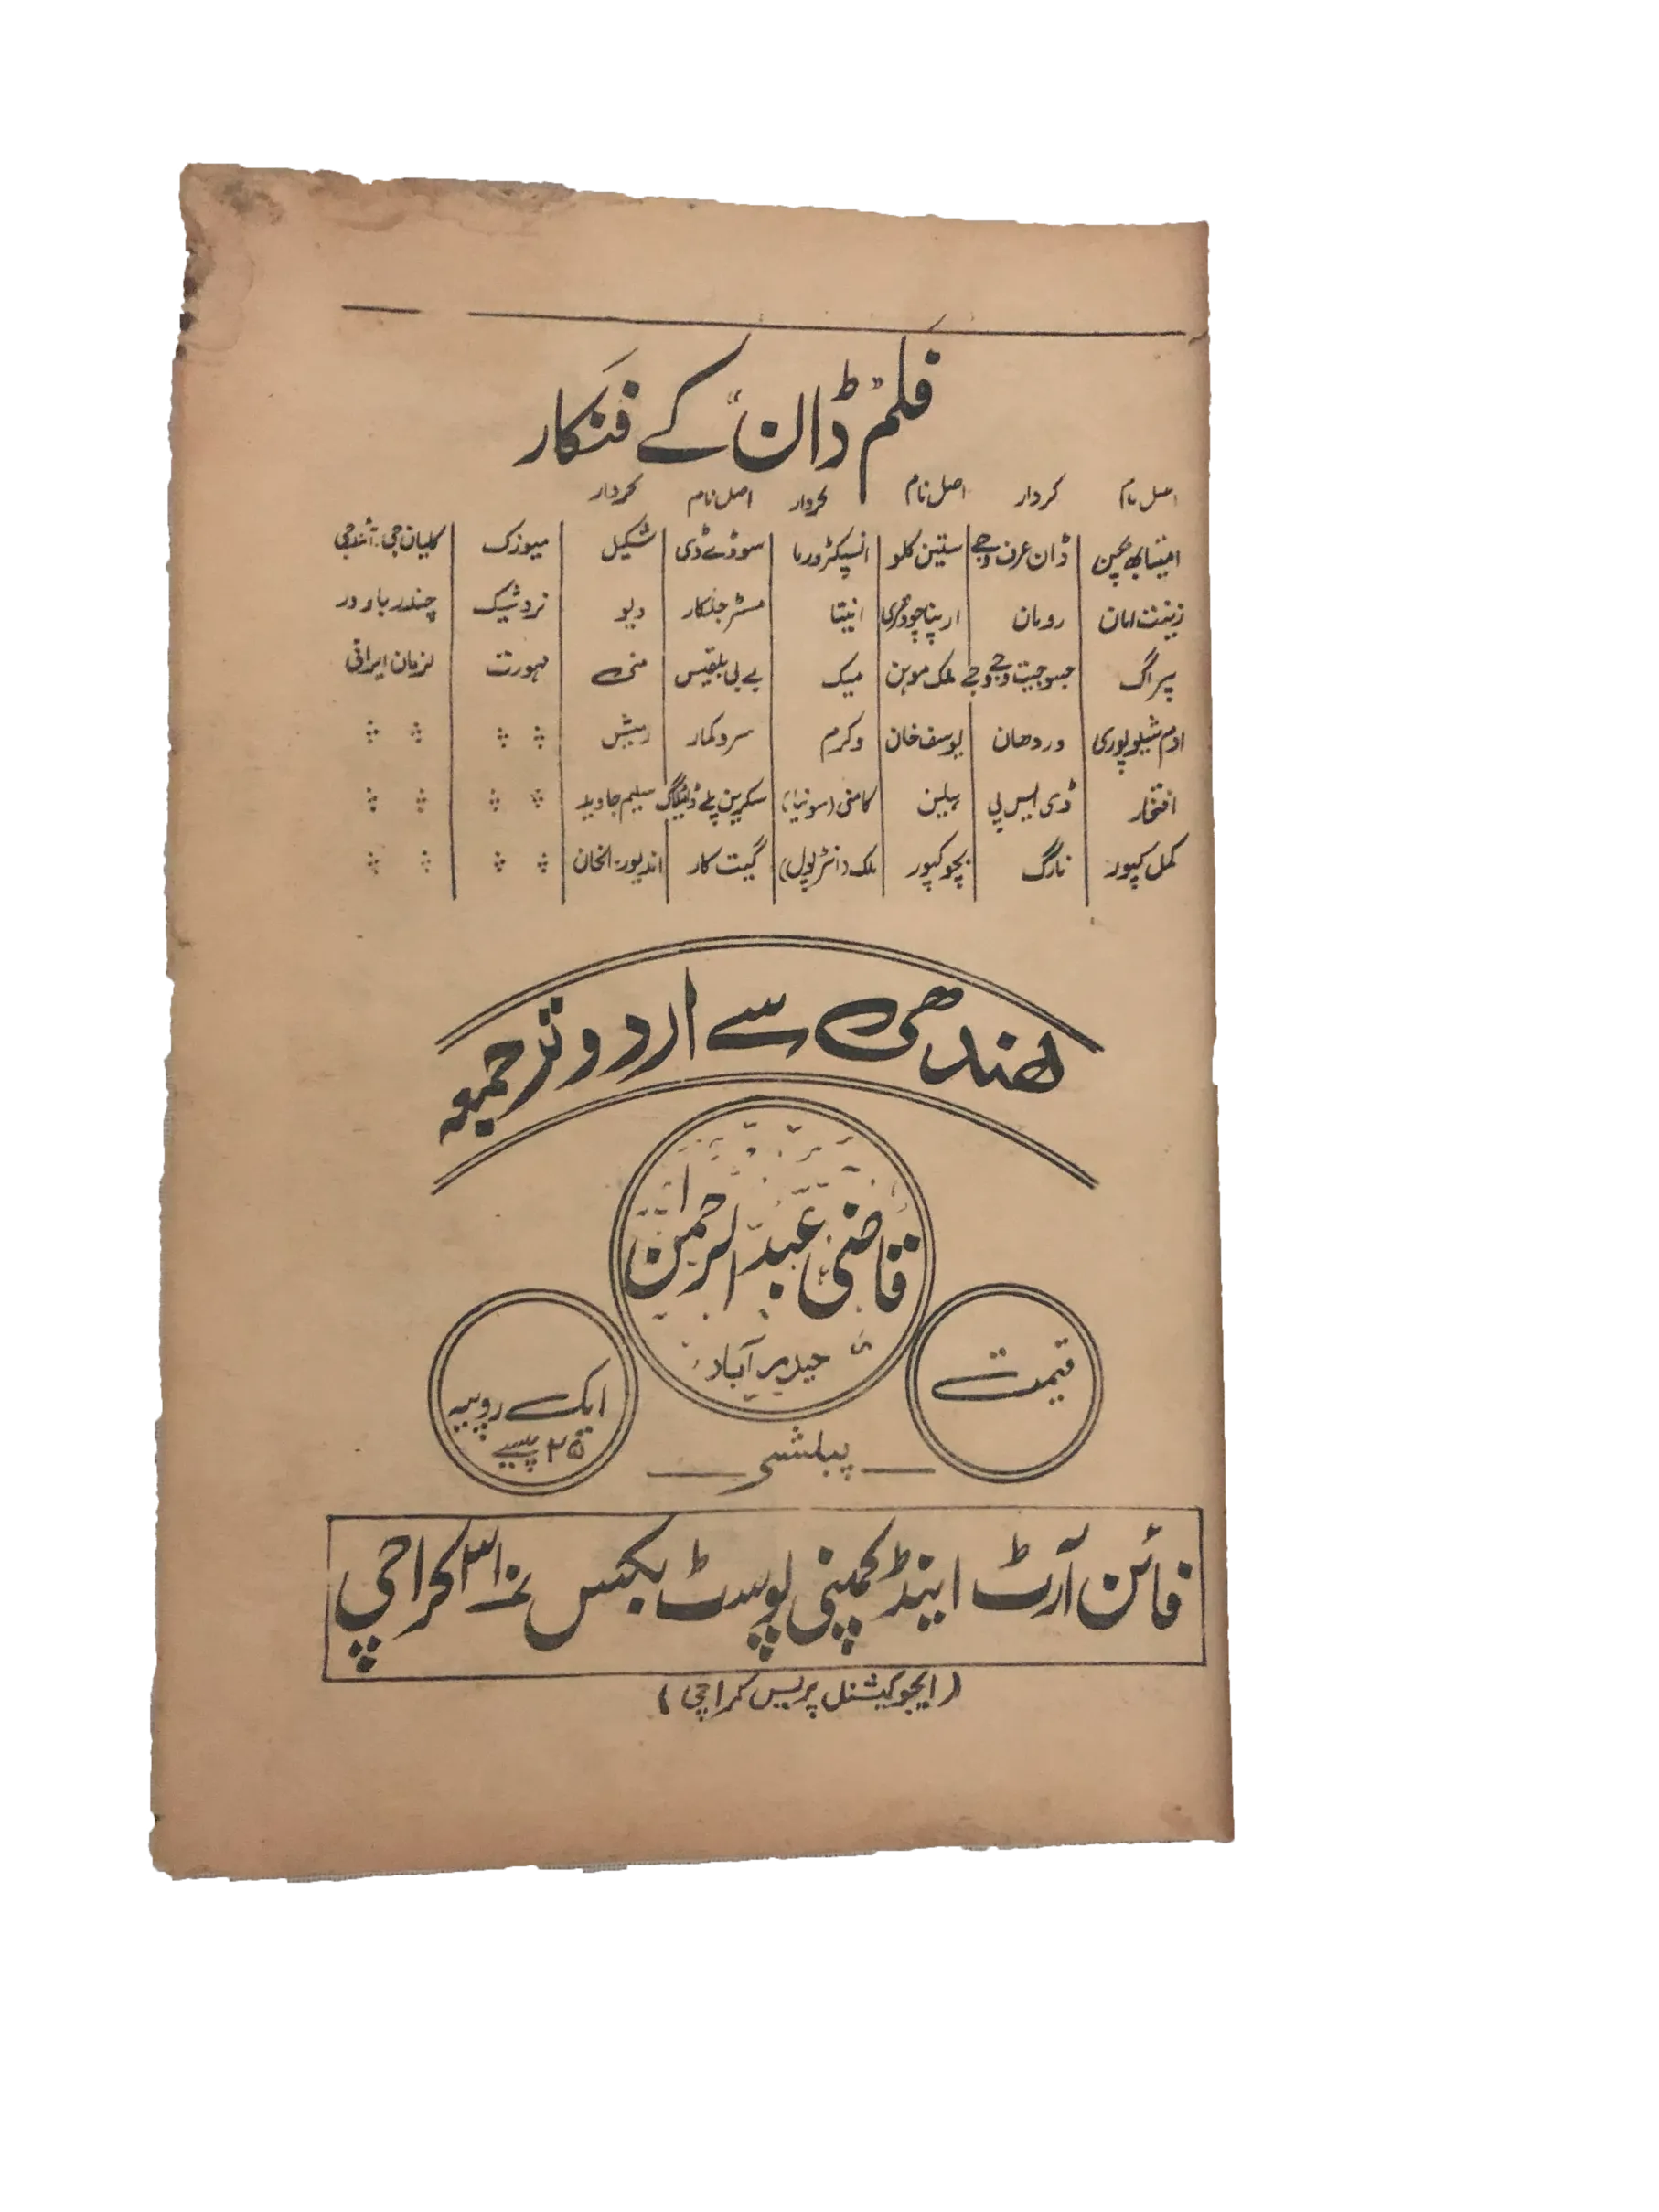 فلم "ڈان" کے فنکار
اصل نام کردار اصل نام کردار اصل نام کردار
امیتابھ بچن ڈان عرف وجے ستین کلو انسپکٹر ورما سوڈے ڈی شکیل میوزک کلیان جی: آنند جی
زینت امان رومان ارپنا چودھری انیتا مسٹر جلکار دیو نردشیک چندر باوور
پیراگ جسوجیت وجے وجے ملک موہن میک بے بی بلقیس منی مہورت نریمان ایرانی
اوم شیلوپوری وردھان یوسف خان وکرم سروکمار رمیش
افتخار ڈی ایس پی ہیلن کامنی (سونیا) سکرین پلے ڈئیلاگ سیلم جاوید
کمل کپور نارگ بچو کپور ملک (انٹرپول) گیت کار اندیور: انخان
ھندھی سے اردو ترجمعہ
قاضی عبدالرحمن
حیدرآباد
قیمت
ایک روپیہ
۲۵ پیسے
پبلشر
فائن آرٹ اینڈ کمپنی پوسٹ بکس نمبر ۳۱۰ کراچی
(ایجوکیشنل پریس کراچی)